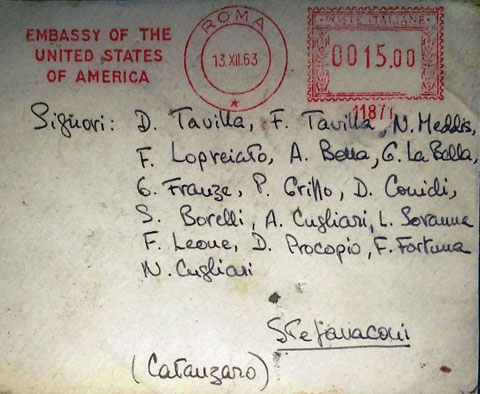 EMBASSY OF THE
UNITED STATES
OF AMERICA
ROMA
13.XII.63
POSTE ITALIANE
0015.00
11871
Signori: D. Tavilla, F. Tavilla, N. Meddis,
F. Lopreiato, A. Bella, G. La Balla,
G. Franze, P. Griffo, D. Conidi,
S. Borelli, A. Cugliari, L. Soranna
F. Leone, D. Procopio, F. Fortuna
N. Cugliari
Stefanaconi
(Catanzaro)